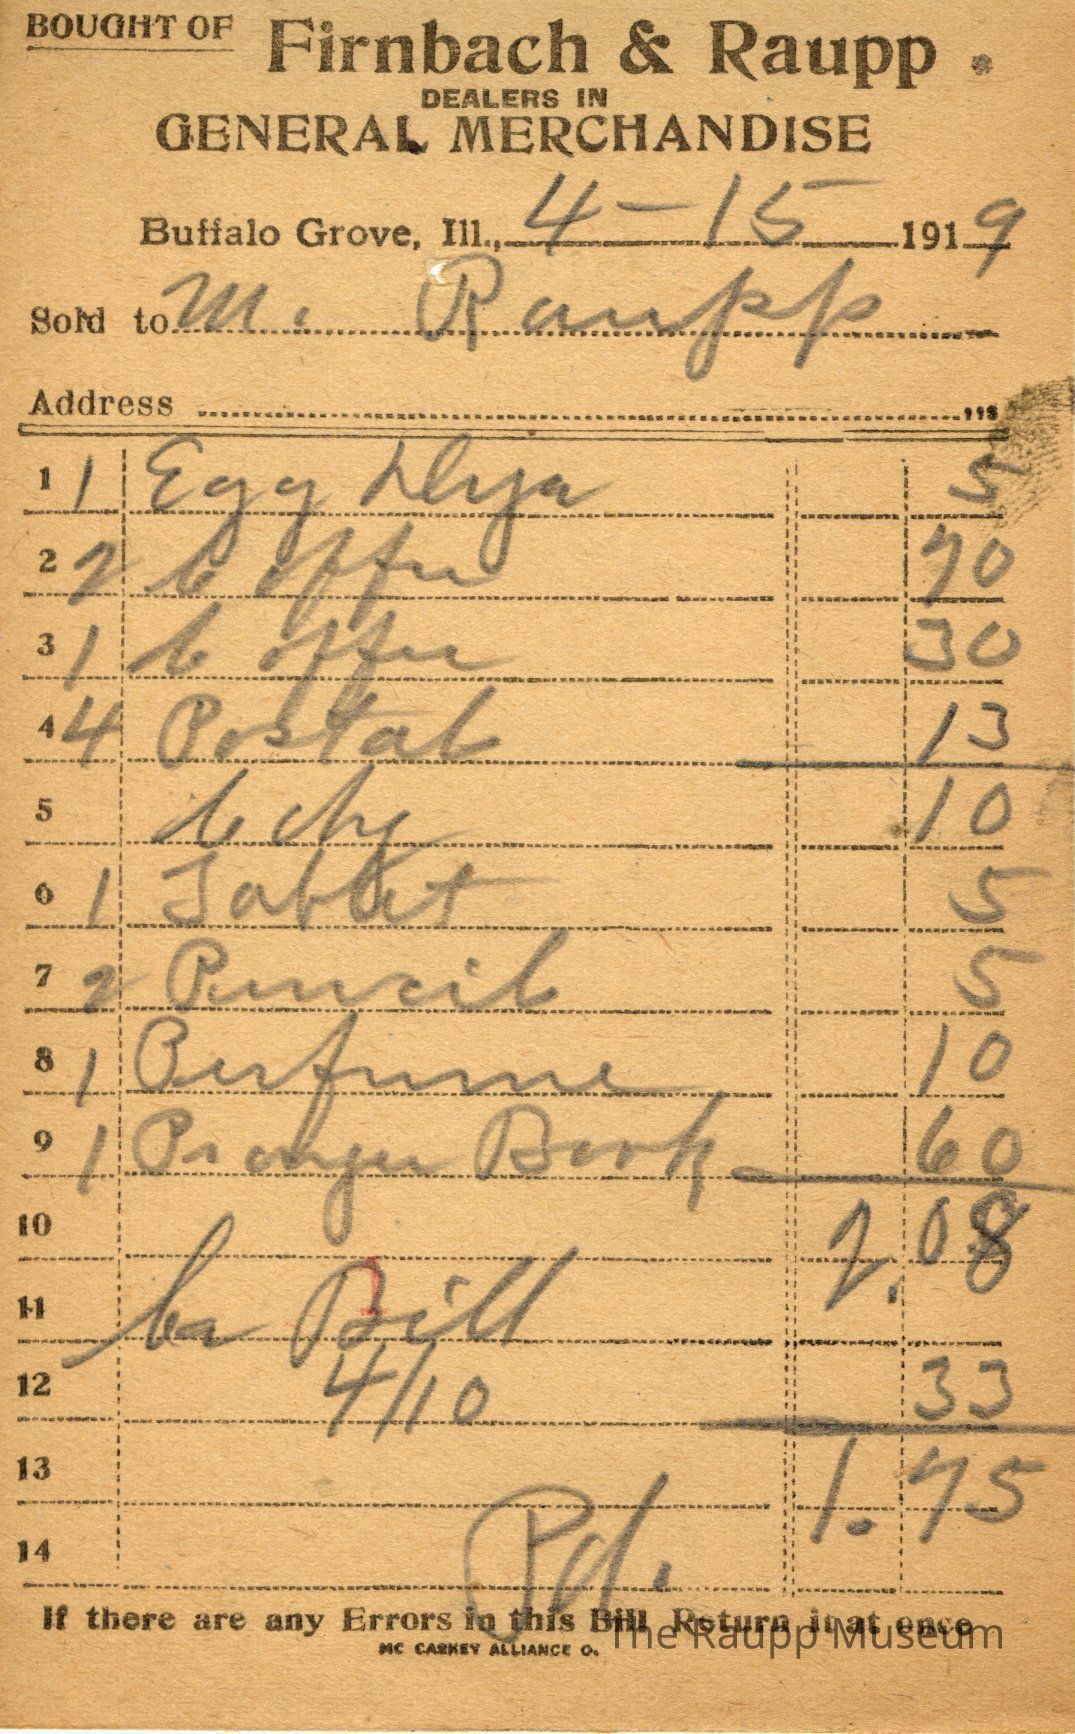 BOUGHT OF Firnbach & Raupp.
DEALERS IN
GENERAL MERCHANDISE
Buffalo Grove, Ill., 4-15 1919
Sold to M. Raupp
Address
1 1 Egg Dye 5
2 2 Coffee 70
3 1 Coffee 30
4 4 Postal 13
5 10
6 1 Tablet 5
7 2 Pencil 5
8 1 Perfume 10
9 1 Prayer Book 60
10 2.08
11 Cr Bill
12 4/10 33
13 1.75
14 Pd.
If there are any Errors in this Bill Return it at once
MC CASKEY ALLIANCE O.
The Raupp Museum